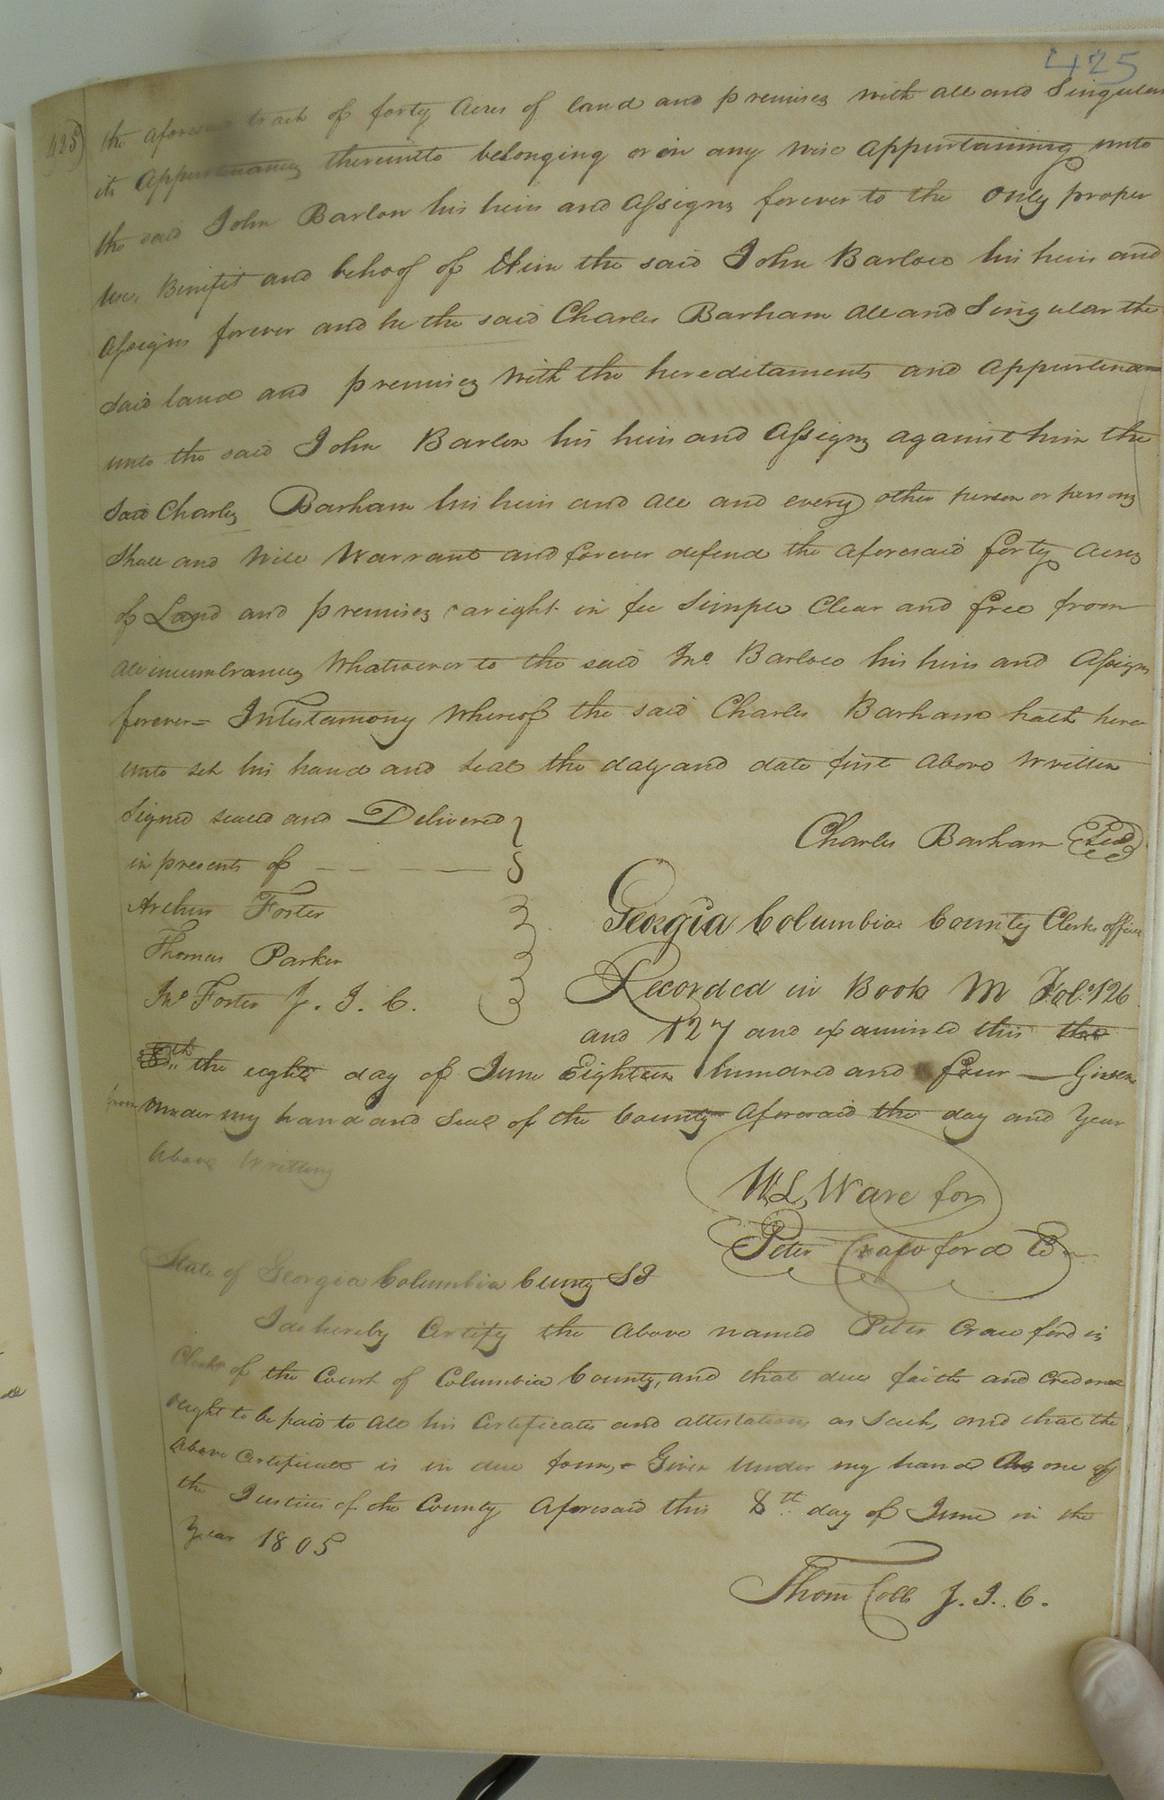 425
425)
the aforesaid track of forty Acres of land and premises with all and Singular
its Appurtenances thereunto belonging or in any wise appurtaining unto
the said John Barlow his heirs and Assigns forever to the only proper
use, Benifit and behoof of Him the said John Barlow his heirs and
Assigns forever and he the said Charles Barham all and Singular the
said land and premises with the hereditaments and appurtenan
unto the said John Barlow his heirs and Assigns against him the
said Charles Barham his heirs and all and every other person or persons
shall and will Warrant and forever defend the aforesaid forty Acres
of Land and premises aright in fee Simple Clear and free from
all incumbrances Whatsoever to the said Jno. Barlow his heirs and Assigns
forever= Intestamony Whereof the said Charles Barham hath here
unto set his hand and seal the day and date first above written
Signed sealed and Delivered
in presents of
Charles Barham Seal
Arthur Foster
Georgia Columbia County Clerks office
Thomas Parker
Jno. Foster J. I. C.
Recorded in Book M Fol. 126
and 127 and examined this the
8th.. the eight day of June Eighteen hundred and four — Given
under my hand and Seal of the County Aforesaid the day and Year
above written
W. L. Ware for
Peter Crawford
State of Georgia Columbia County SS
I do hereby Certify the above named Peter Crawford is
Clerk of the Court of Columbia County, and that due faith and Credence
ought to be paid to all his Certificates and attestations as such, and that the
above Certificate is in due form,- Given under my hand As one of
the Justices of the County Aforesaid this 8th. day of June in the
Year 1805
Thom Cobb J. I. C.